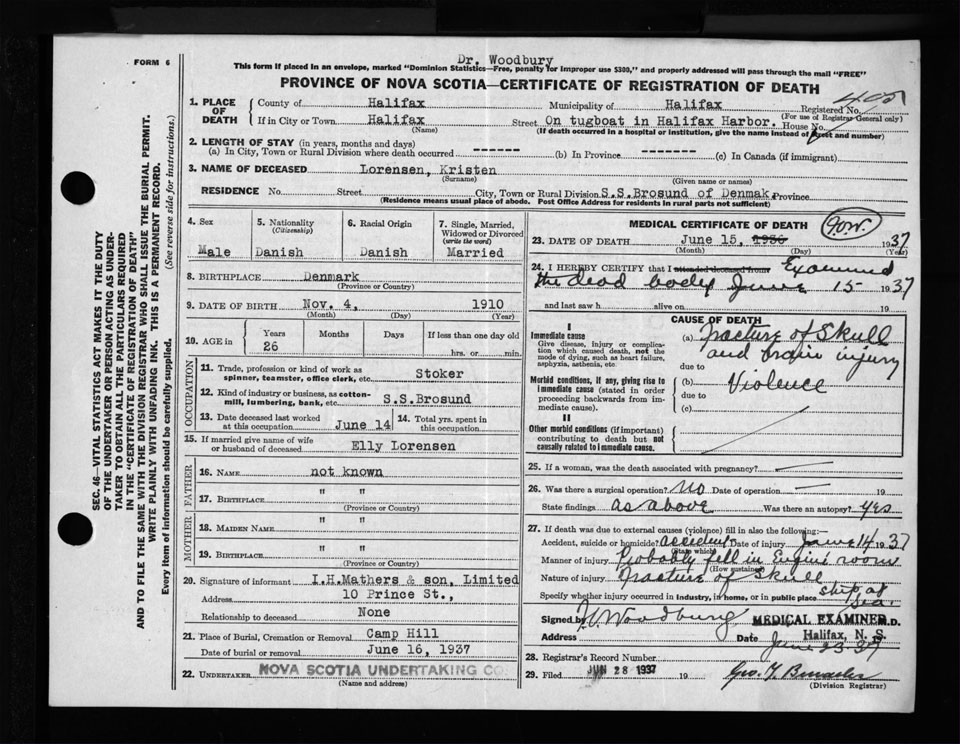 FORM 6
Dr. Woodbury
This form if placed in an envelope, marked "Dominion Statistics—Free, penalty for improper use $300," and properly addressed will pass through the mail "FREE"
PROVINCE OF NOVA SCOTIA—CERTIFICATE OF REGISTRATION OF DEATH
SEC. 46—VITAL STATISTICS ACT MAKES IT THE DUTY
OF THE UNDERTAKER OR PERSON ACTING AS UNDER-
TAKER TO OBTAIN ALL THE PARTICULARS REQUIRED
IN THE "CERTIFICATE OF REGISTRATION OF DEATH"
AND TO FILE THE SAME WITH THE DIVISION REGISTRAR WHO SHALL ISSUE THE BURIAL PERMIT.
WRITE PLAINLY WITH UNFADING INK. THIS IS A PERMANENT RECORD.
Every item of information should be carefully supplied. (See reverse side for instructions.)
1. PLACE OF DEATH
County of Halifax Municipality of Halifax Registered No.
(For use of Registrar General only)
If in City or Town Halifax Street On tugboat in Halifax Harbor. House No.
(Name) (If death occurred in a hospital or institution, give the name instead of street and number)
2. LENGTH OF STAY (in years, months and days)
(a) In City, Town or Rural Division where death occurred ------- (b) In Province ------- (c) In Canada (if immigrant)
3. NAME OF DECEASED Lorensen, Kristen
(Surname) (Given name or names)
RESIDENCE No. Street City, Town or Rural Division S.S.Brosund of Denmak Province
(Residence means usual place of abode. Post Office Address for residents in rural parts not sufficient)
4. Sex
Male
5. Nationality
(Citizenship)
Danish
6. Racial Origin
Danish
7. Single, Married,
Widowed or Divorced
(write the word)
Married
8. BIRTHPLACE Denmark
(Province or Country)
9. DATE OF BIRTH Nov. 4, 1910
(Month) (Day) (Year)
10. AGE in Years Months Days If less than one day old
26 hrs. or min.
OCCUPATION
11. Trade, profession or kind of work as
spinner, teamster, office clerk, etc. Stoker
12. Kind of industry or business, as cotton-
mill, lumbering, bank, etc. S.S.Brosund
13. Date deceased last worked
at this occupation June 14
14. Total yrs. spent in
this occupation
15. If married give name of wife
or husband of deceased Elly Lorensen
FATHER
16. NAME not known
17. BIRTHPLACE " "
(Province or Country)
MOTHER
18. MAIDEN NAME " "
19. BIRTHPLACE " "
(Province or Country)
20. Signature of informant I.H.Mathers & son, Limited
Address 10 Prince St.,
Relationship to deceased None
21. Place of Burial, Cremation or Removal Camp Hill
Date of burial or removal June 16, 1937
22. UNDERTAKER NOVA SCOTIA UNDERTAKING CO.
(Name and address)
MEDICAL CERTIFICATE OF DEATH
23. DATE OF DEATH June 15. 1936 1937
(Month) (Day) (Year)
24. I HEREBY CERTIFY that I attended deceased from Examined
the dead body June 15 1937
and last saw h alive on 19
CAUSE OF DEATH
I
Immediate cause
Give disease, injury or complica-
tion which caused death, not the
mode of dying, such as heart failure,
asphyxia, asthenia, etc.
(a) Fracture of Skull
and brain injury
due to
Morbid conditions, if any, giving rise to
immediate cause (stated in order
proceeding backwards from im-
mediate cause).
(b) Violence
due to
(c)
II
Other morbid conditions (if important)
contributing to death but not
causally related to immediate cause.
25. If a woman, was the death associated with pregnancy?
26. Was there a surgical operation? No Date of operation 19
State findings as above Was there an autopsy? yes
27. If death was due to external causes (violence) fill in also the following:—
Accident, suicide or homicide? accident Date of injury June 14 1937
(State which)
Manner of injury Probably fell in Engine room
(How sustained)
Nature of injury Fracture of Skull
Specify whether injury occurred in industry, in home, or in public place ship at
sea.
Signed by Woodbury MEDICAL EXAMINER M.D.
Address Halifax, N. S.
Date June 23-37
28. Registrar's Record Number
29. Filed JUN 28 1937 19
(Division Registrar)